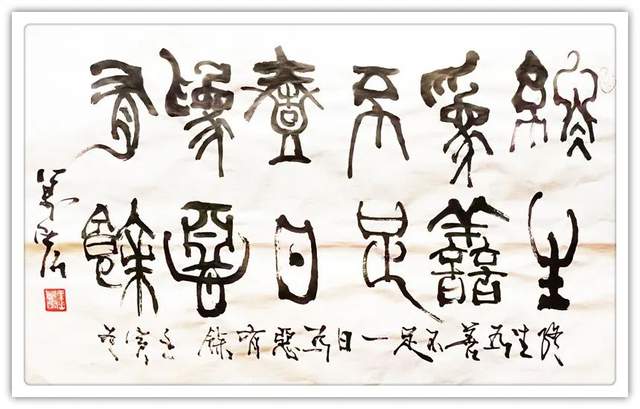 終生
為善
不足
壹日
為惡
有餘
终生为善不足一日为惡有餘